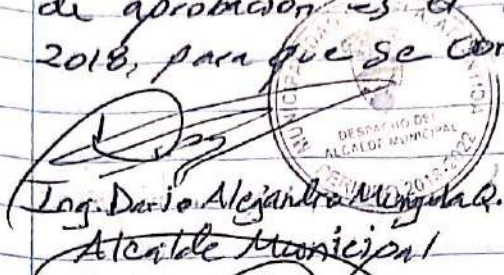 de aprobación es el
2018, para que se Con
DESPACHO DEL
ALCALDE MUNICIPAL
Ing. Dario Alejandro Munguia Q.
Alcalde Municipal